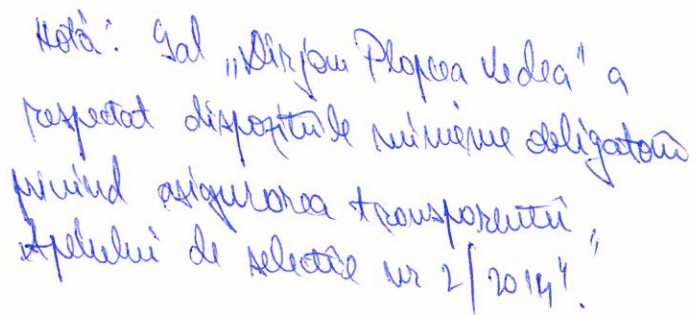 Notă: Gal „Dirjov Plopcea Vedea" a
respectat dispozitiile minieme obligatorii
privind asigurarea transparentii
Apelului de selectie nr 2/2014".